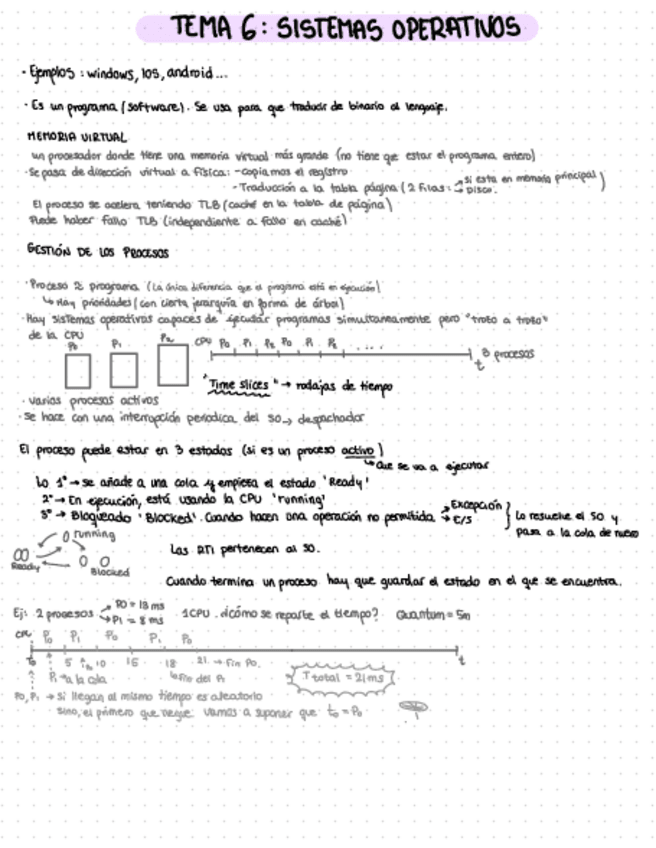 TEMA 6: SISTEMAS OPERATIVOS
· Ejemplos: windows, IOS, android...
· Es un programa (software). Se usa para que traducir de binario al lenguaje.
MEMORIA VIRTUAL
un procesador donde tiene una memoria virtual más grande (no tiene que estar el programa entero)
· Se pasa de dirección virtual a física: - copiamos el registro
- Traducción a la tabla página (2 filas: → si esta en memoria principal
→ Disco. )
El proceso se acelera teniendo TLB (caché en la tabla de página)
Puede haber fallo TLB (independiente a fallo en caché)
GESTIÓN DE LOS PROCESOS
· Proceso ≥ programa (La única diferencia que el programa está en ejecución)
↳ Hay prioridades (con cierta jerarquía en forma de árbol)
· Hay sistemas operativos capaces de ejecutar programas simultaneamente pero "trozo a trozo"
de la CPU
P0 P1 P2 CPU P0 P1 P2 P0 P1 P2 .... t 3 procesos
"Time slices" → rodajas de tiempo
· varias procesos activos
· se hace con una interrupción periodica del SO → despachador
El proceso puede estar en 3 estados (si es un proceso activo)
↳ que se va a ejecutar
Lo 1º → se añade a una cola y empieza el estado 'Ready'
2º → En ejecución, está usando la CPU 'running'
3º → Bloqueado 'Blocked'. Cuando hacen una operación no permitida → Excepción
→ E/S } Lo resuelve el SO y
pasa a la cola de nuevo
running
Ready
Blocked
Las RTI pertenecen al SO.
Cuando termina un proceso hay que guardar el estado en el que se encuentra.
Ej: 2 procesos → P0 = 13 ms
→ P1 = 8 ms
1CPU. ¿cómo se reparte el tiempo? Quantum = 5m
CPU P0 P1 P0 P1 P0
T0 5 10 15 18 21 → Fin P0. t
P1 a la cola ↳ Fin del P1
T total = 21ms
P0, P1 → Si llegan al mismo tiempo es aleatorio
sino, el primero que llegue. Vamos a suponer que t0 = P0